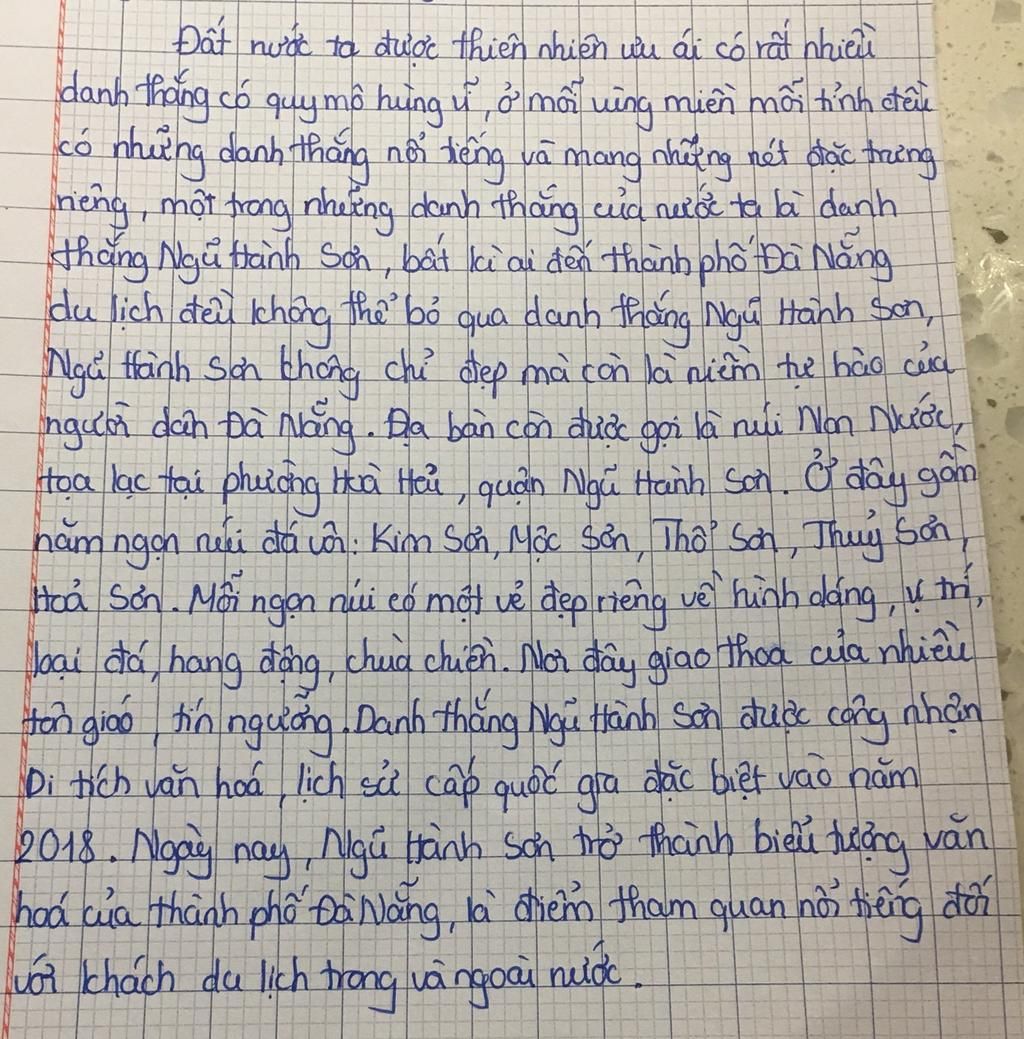 Đất nước ta được thiên nhiên ưu ái có rất nhiều
danh thắng có quy mô hùng vĩ, ở mỗi vùng miền mỗi tỉnh đều
có những danh thắng nổi tiếng và mang những nét đặc trưng
riêng, một trong những danh thắng của nước ta là danh
thắng Ngũ Hành Sơn, bất kì ai đến thành phố Đà Nẵng
du lịch đều không thể bỏ qua danh thắng Ngũ Hành Sơn,
Ngũ Hành Sơn không chỉ đẹp mà còn là niềm tự hào của
người dân Đà Nẵng. Địa bàn còn được gọi là núi Non Nước,
tọa lạc tại phường Hoà Hải, quận Ngũ Hành Sơn. Ở đây gồm
năm ngọn núi đá vôi: Kim Sơn, Mộc Sơn, Thổ Sơn, Thuỷ Sơn,
Hoả Sơn. Mỗi ngọn núi có một vẻ đẹp riêng về hình dáng, vị trí,
loại đá, hang động, chùa chiền. Nơi đây giao thoa của nhiều
tôn giáo, tín ngưỡng. Danh thắng Ngũ Hành Sơn được công nhận
Di tích văn hoá, lịch sử cấp quốc gia đặc biệt vào năm
2018. Ngày nay, Ngũ Hành Sơn trở thành biểu tượng văn
hoá của thành phố Đà Nẵng, là điểm tham quan nổi tiếng đối
với khách du lịch trong và ngoài nước.